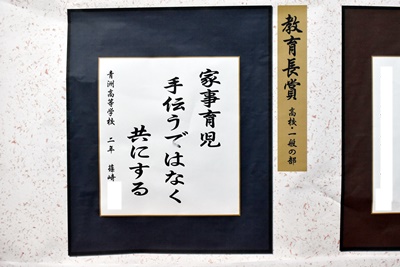 教育長賞 高校・一般の部
家事育児
手伝うではなく
共にする
青洲高等学校 二年 篠崎